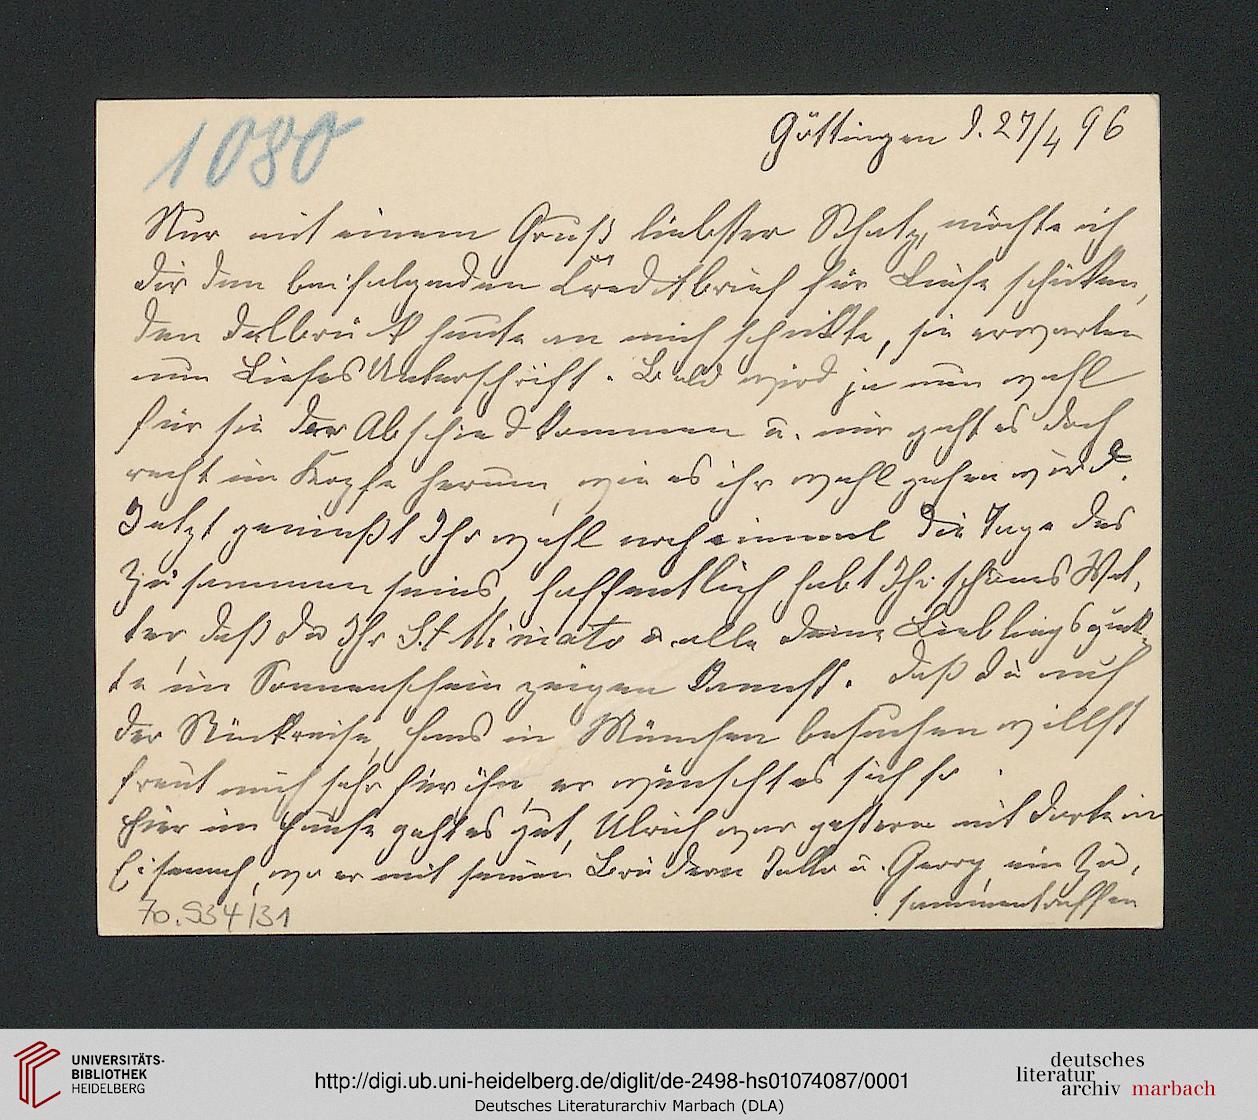 1080
Göttingen d. 27/4 96
Nur mit einem Gruß liebster Schatz, möchte ich
dir den beifolgenden Kreditbrief für Liese schicken,
den Delbrück heute an mich schickte, sie erwarten
nun Lieses Unterschrift. Bald wird ja nun wohl
für sie der Abschied kommen u. mir geht es doch
recht im Kopfe herum, wie es ihr wohl gehen wird.
Jetzt genießt Ihr wohl noch einmal die Tage des
Zusammenseins, hoffentlich habt Ihr schönes Wet-
ter, daß du Ihr St Miniato u. alle deine Lieblingspunk-
te im Sonnenschein zeigen kannst. Daß du auf
der Rückreise, Hans in München besuchen willst
freut mich sehr für ihn, er wünscht es sich so.
Hier im Hause geht es gut, Ulrich war gestern mit in
Eisenach, wo er mit seinen Brüdern u. Georg ein Zu-
sammentreffen
70.934/31
UNIVERSITÄTS-
BIBLIOTHEK
HEIDELBERG
http://digi.ub.uni-heidelberg.de/diglit/de-2498-hs01074087/0001
Deutsches Literaturarchiv Marbach (DLA)
deutsches
literatur
archiv marbach